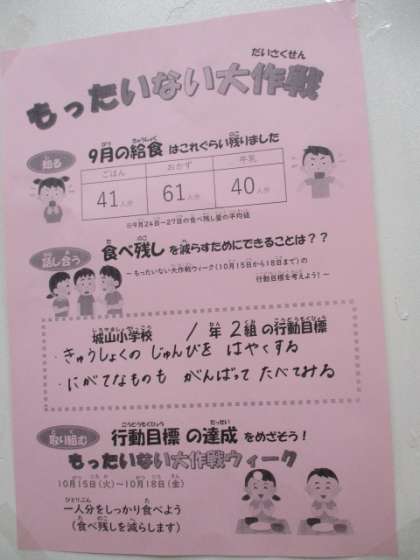 もったいない大作戦
だいさくせん
知る
9月の給食はこれぐらい残りました
ごはん おかず 牛乳
41人分 61人分 40人分
※9月24日~27日の食べ残し量の平均値
話し合う
食べ残しを減らすためにできることは??
~もったいない大作戦ウィーク(10月15日から18日まで)の
行動目標を考えよう!~
城山小学校 1年2組の行動目標
・きゅうしょくの じゅんびを はやくする
・にがてなものも がんばって たべてみる
取り組む
行動目標の達成をめざそう!
もったいない大作戦ウィーク
10月15日(火)~10月18日(金)
一人分をしっかり食べよう
(食べ残しを減らします)